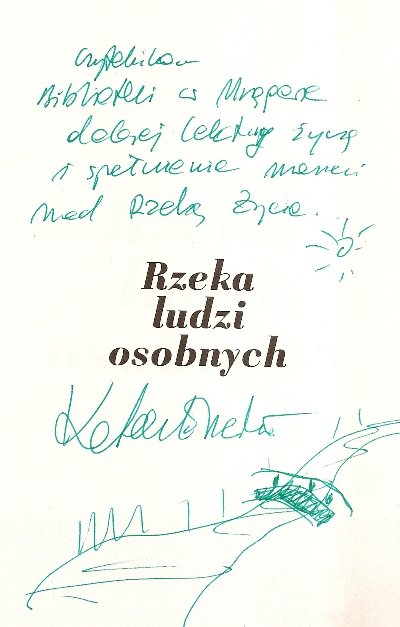 Czytelnikom
Biblioteki w Mrągowie
dobrej lektury życzę
i spełnienia marzeń
nad Rzeką Życia.
Rzeka
ludzi
osobnych